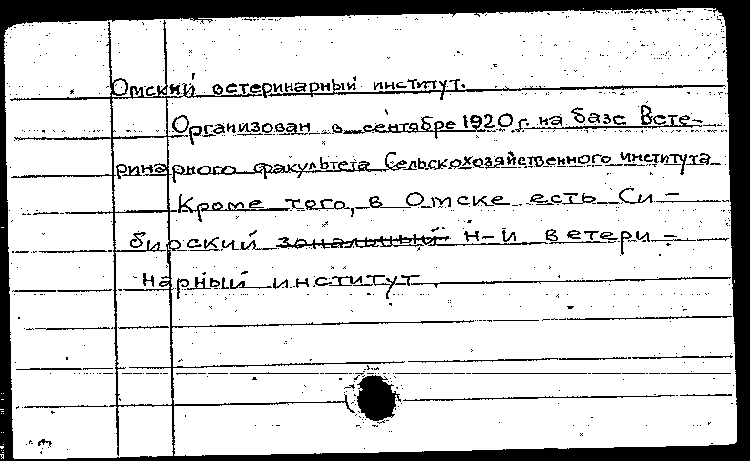 Омский ветеринарный институт.
Организован в сентябре 1920 г. на базе Вете-
ринарного факультета Сельскохозяйственного института
Кроме того, в Омске есть Си-
бирский зональный н-и ветери-
нарный институт.